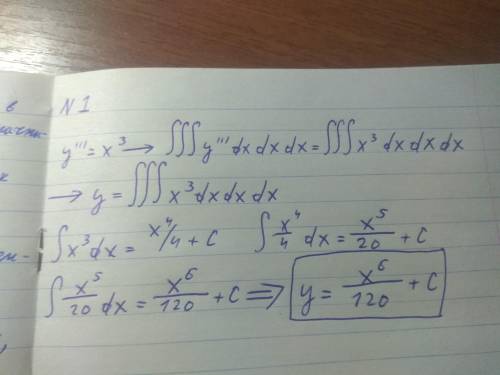 N 1
y''' = x³ → ∭ y''' dx dx dx = ∭ x³ dx dx dx
→ y = ∭ x³ dx dx dx
∫ x³ dx = x⁴/4 + C ∫ x⁴/4 dx = x⁵/20 + C
∫ x⁵/20 dx = x⁶/120 + C ⇒ y = x⁶/120 + C